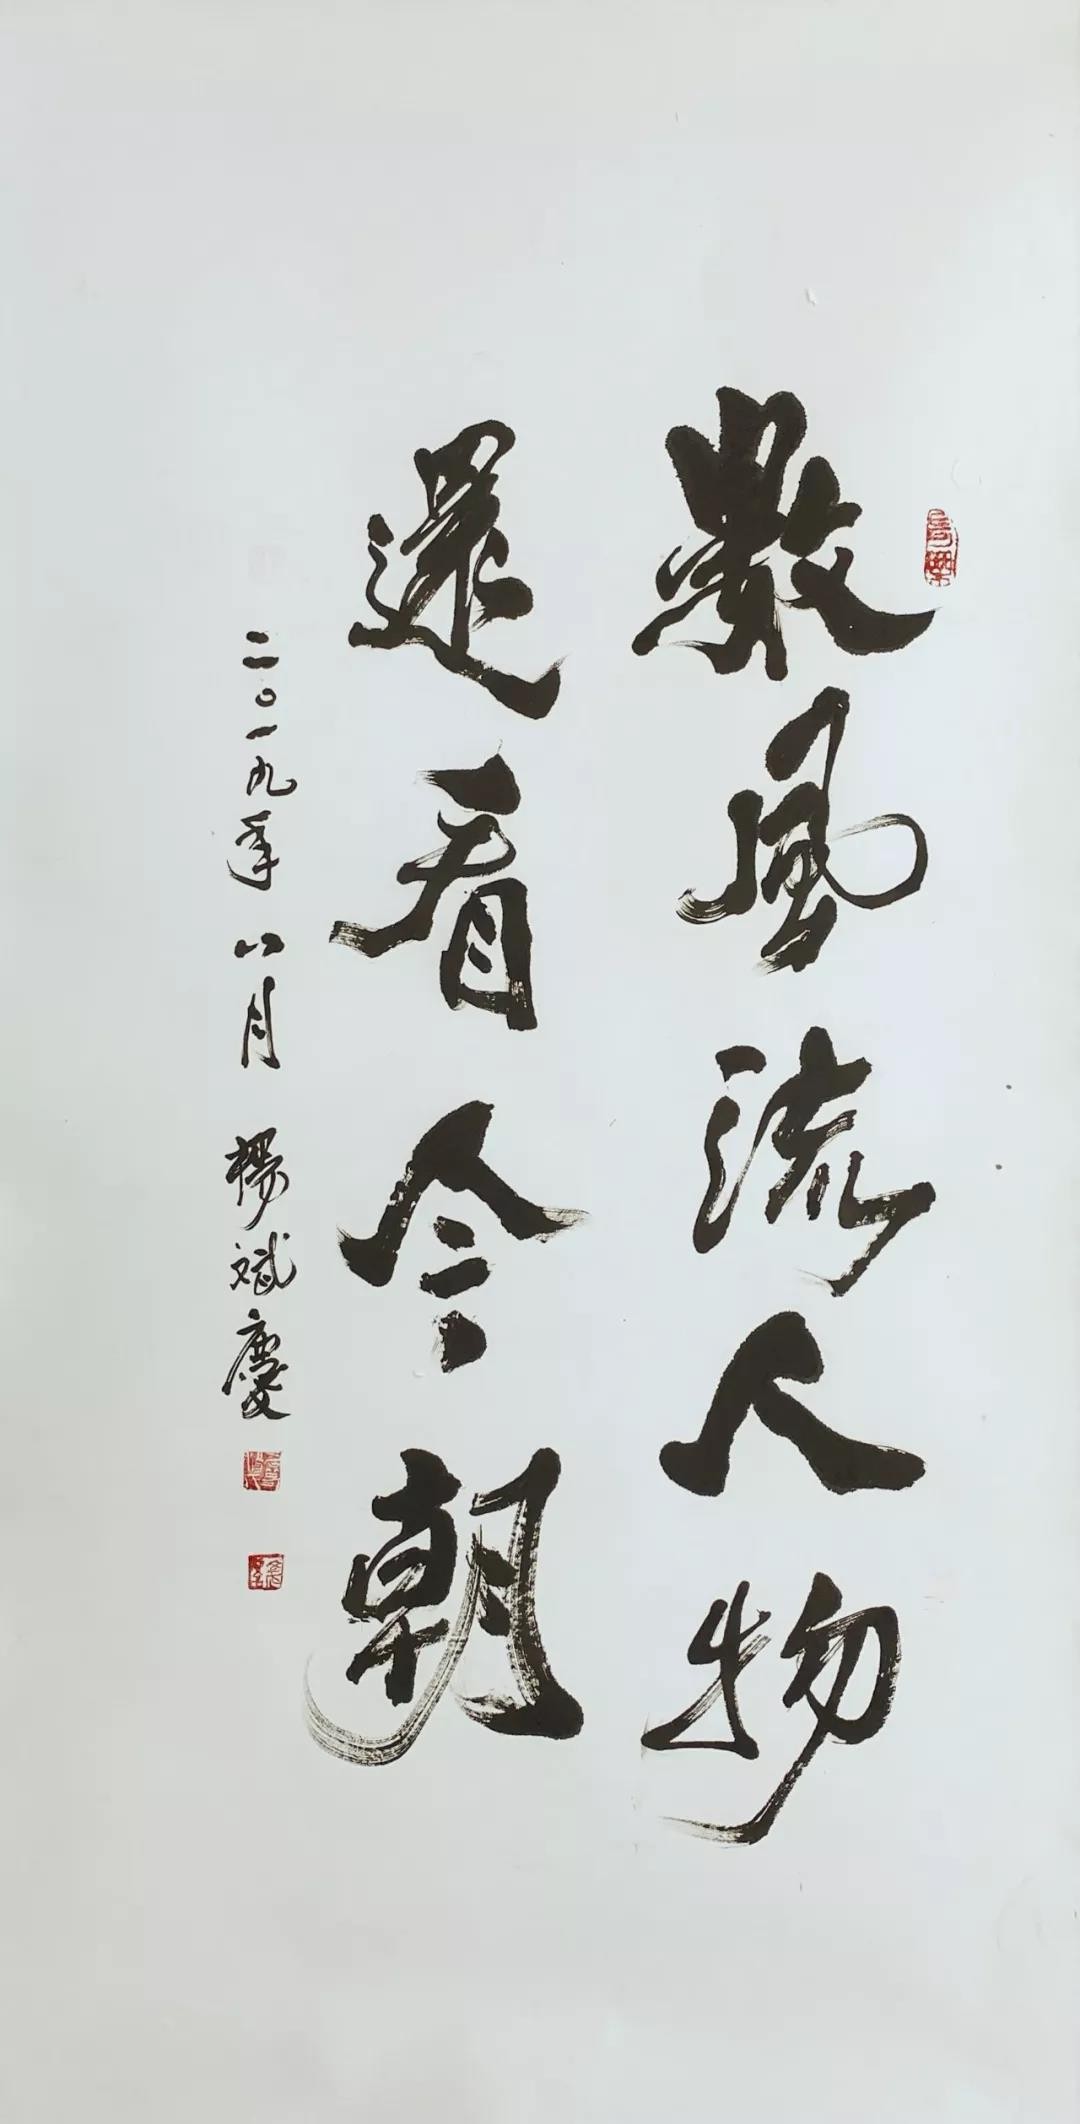 數風流人物
還看今朝
二〇一九年八月 楊斌慶